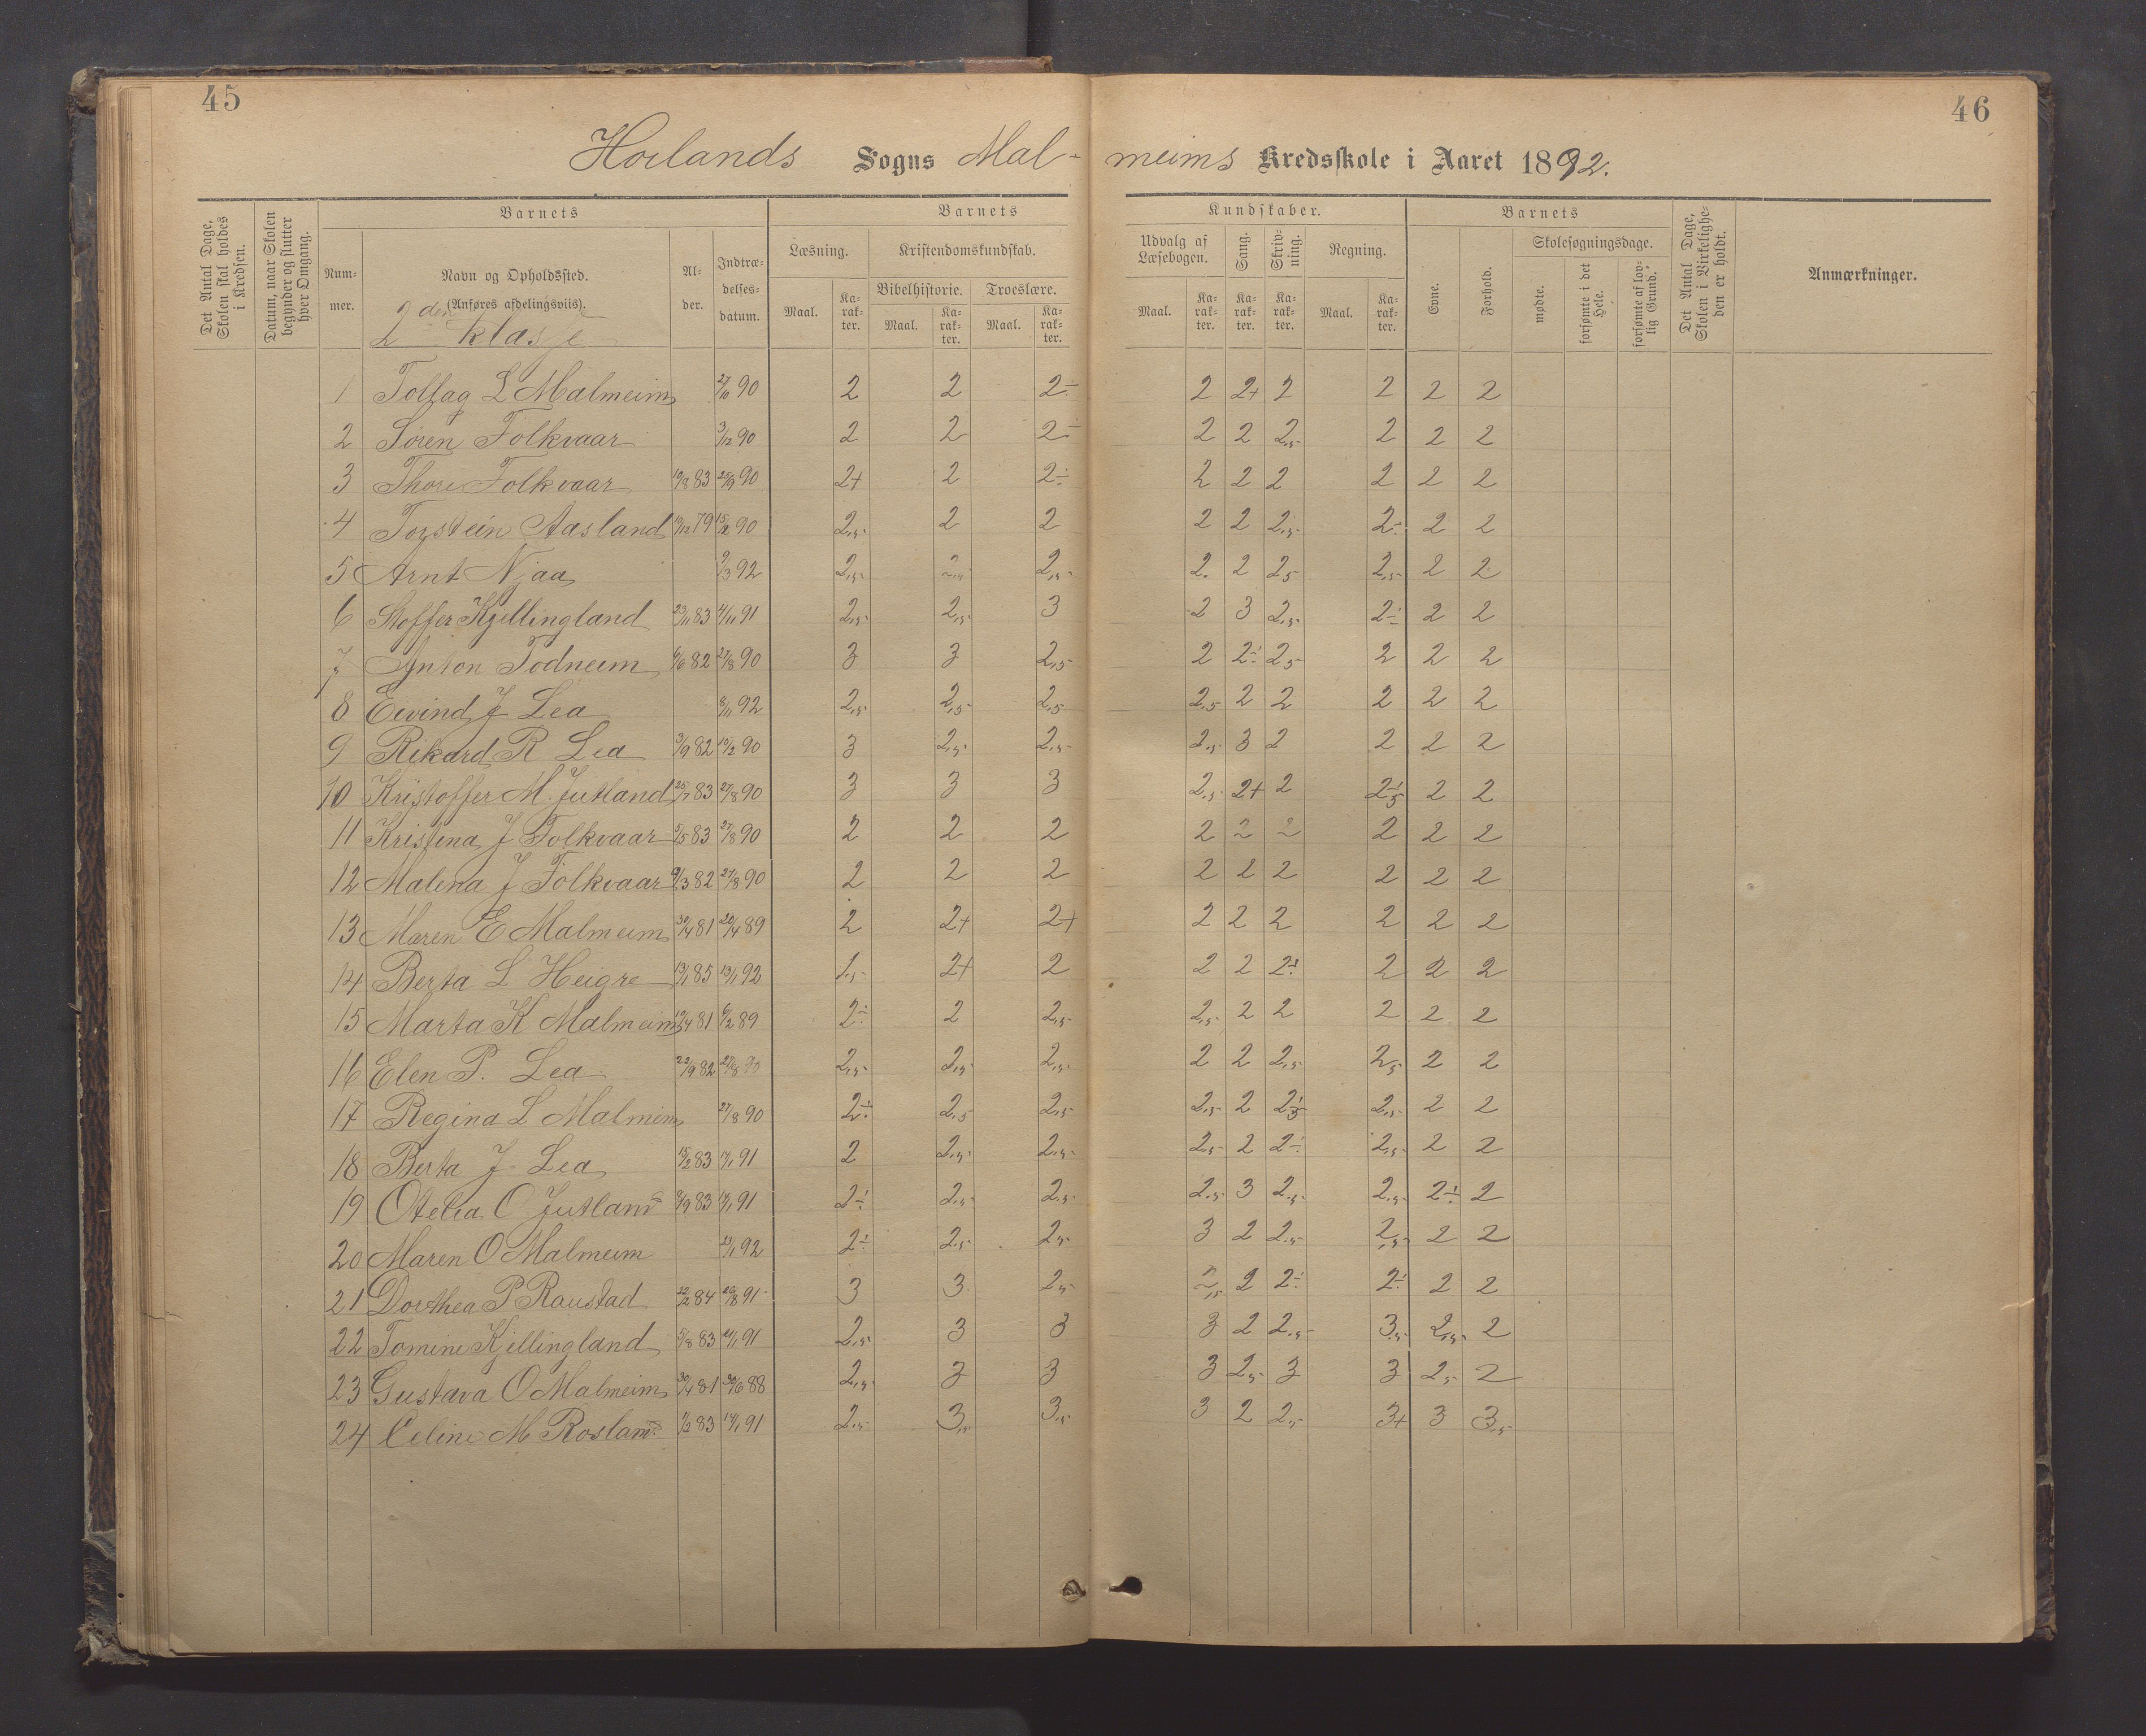 45
46
Hoilands Sogns Mal- meims Kredsskole i Aaret 1892.
Det Antal Dage, Skolen skal holdes i Kredsen.
Datum, naar Skolen begynder og slutter hver Omgang.
Barnets
Nummer.
Navn og Opholdssted.
(Anføres afdelingsviis).
2den Klasse
Alder.
Indtrædelsesdatum.
Barnets Kundskaber.
Læsning.
Kristendomskundskab.
Bibelhistorie.
Troeslære.
Udvalg af Læsebogen.
Sang.
Skrivning.
Regning.
Maal.
Karakter.
Maal.
Karakter.
Maal.
Karakter.
Maal.
Karakter.
Karakter.
Karakter.
Maal.
Karakter.
Barnets
Evne.
Forhold.
Skolesøgningsdage.
mødte.
forsømte i det Hele.
forsømte af lovlig Grund.
Det Antal Dage, Skolen i Virkeligheden er holdt.
Anmærkninger.
1 Tollag L Malmeim 27/10 90 2 2 2÷ 2 2+ 2 2 2 2
2 Søren Folkvaar 3/12 90 2 2 2÷ 2 2 2,5 2 2 2
3 Thore Folkvaar 19/8 83 25/9 90 2+ 2 2÷ 2 2 2 2 2 2
4 Torstein Aasland 19/12 79 15/12 90 2,5 2 2 2 2 2,5 2÷ 2 2
5 Arnt Njaa 9/3 92 2,5 2,5 2,5 2 2 2,5 2,5 2 2
6 Stoffer Kjellingland 23/11 83 4/11 91 2,5 2,5 3 2 3 2,5 2÷ 2 2
7 Anton Todneim 6/6 82 27/8 90 3 3 2,5 2 2÷ 2,5 2 2 2
8 Eivind J Lea 8/11 92 2,5 2,5 2,5 2,5 2 2 2 2 2
9 Rikard R Lea 3/9 82 19/2 90 3 2,5 2,5 2,5 3 2 2 2 2
10 Kristoffer M. Jutland 25/7 83 27/8 90 3 3 3 2,5 2+ 2 2,5 2 2
11 Kristina J Folkvaar 5/5 83 27/8 90 2 2 2 2 2 2 2 2 2
12 Malena J Folkvaar 9/3 82 27/8 90 2 2 2 2 2 2 2 2 2
13 Maren E Malmeim 30/4 81 20/4 89 2 2+ 2+ 2 2 2 2 2 2
14 Berta L Heigre 13/1 85 13/1 92 1,5 2+ 2 2 2 2÷ 2 2 2
15 Marta K Malmeim 19/4 81 6/2 89 2÷ 2 2,5 2,5 2 2 2 2 2
16 Elen P. Lea 22/9 82 27/8 90 2,5 2,5 2,5 2 2 2,5 2,5 2 2
17 Regina L Malmeim 27/8 90 2÷ 2,5 2,5 2,5 2 2,5 2,5 2 2
18 Berta J Lea 15/2 83 7/1 91 2 2,5 2,5 2,5 2 2÷ 2,5 2 2
19 Otelia O Jutland 8/9 83 14/1 91 2÷ 2,5 2,5 2,5 3 2,5 2,5 2÷ 2
20 Maren O Malmeim 21/1 92 2÷ 2,5 2,5 3 2 2,5 2,5 2 2
21 Dorthea P Raustad 22/2 84 26/8 91 3 3 2,5 2,5 2 2÷ 2÷ 2 2
22 Tomine Kjellingland 5/8 83 21/1 91 2,5 3 3 3 2 2,5 3,5 2,5 2
23 Gustava O Malmeim 30/4 81 30/6 88 2,5 3 3 3 2,5 3 3 2,5 2
24 Celine M Rosland 7/2 83 14/1 91 2,5 3,5 3,5 3 2 2,5 3+ 3 3,5